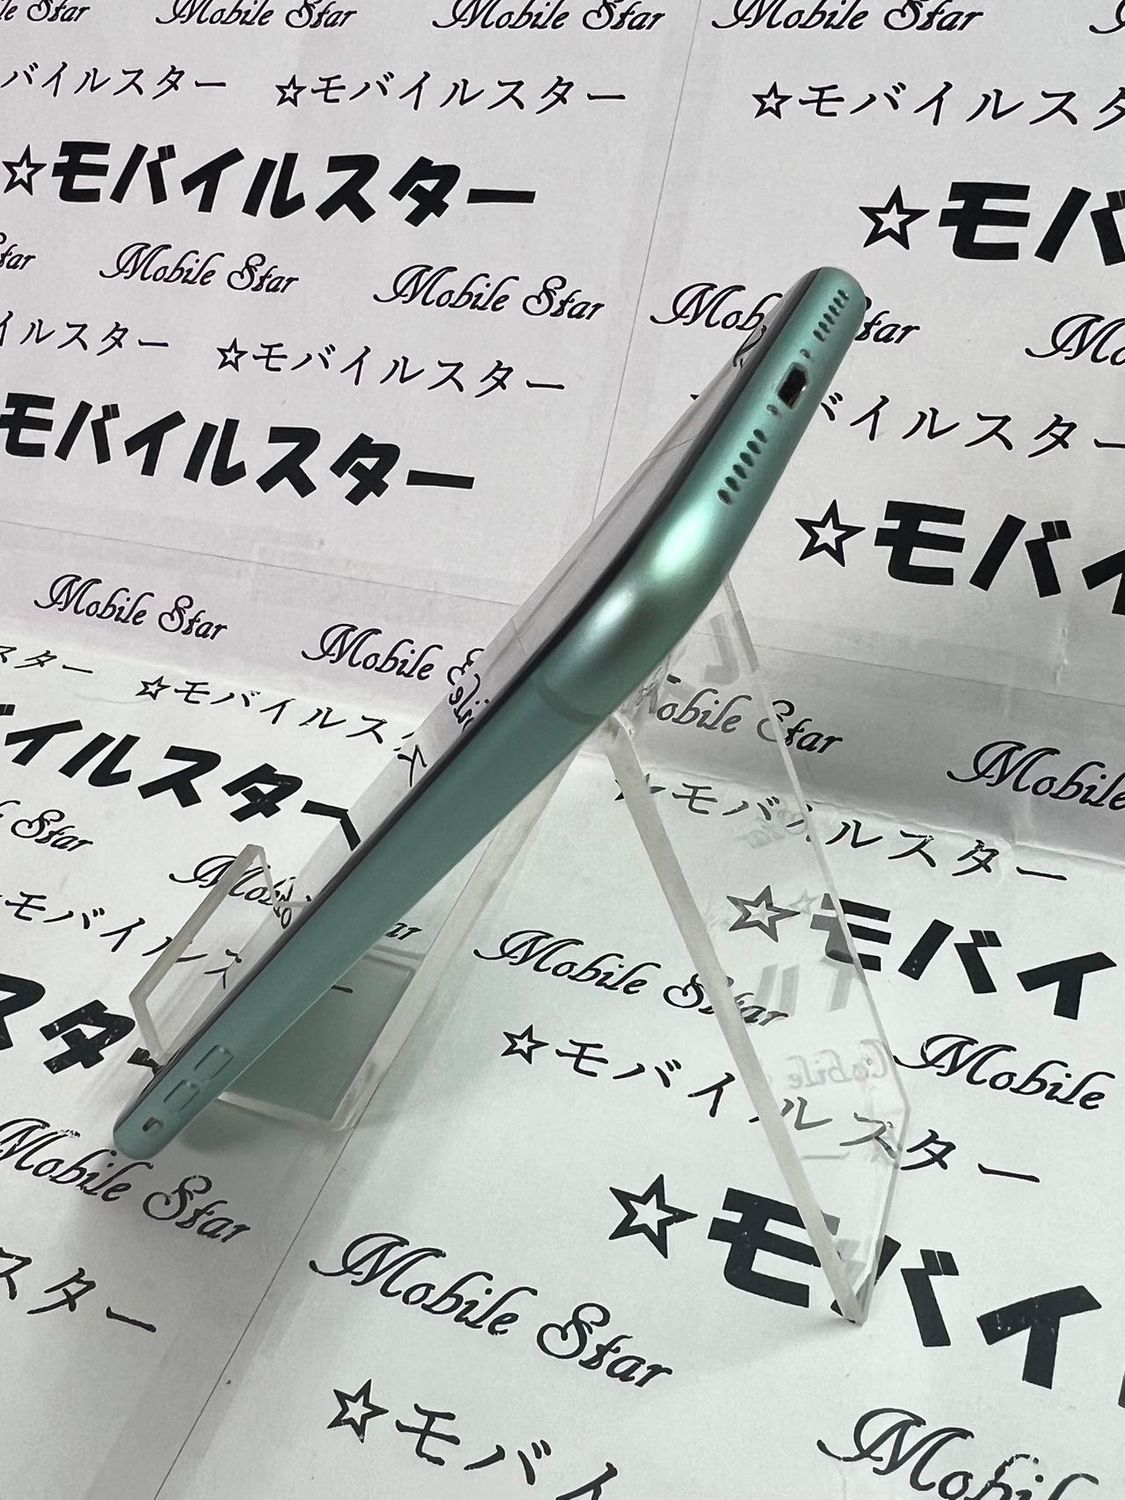 Mobile Star Mobile Star Mobile Star
バイルスター ☆モバイルスター ☆モバイルスタ
☆モバイルスター ☆モバ
Star Mobile Star Mobile Star Mob ar
イルスター ☆モバイルスター バイルスター
モバイルスター ☆モバイ
Mobile Star Mobile
スター ☆モバイルス obile Star Mobile
イルスター モバイルスター
Star Mobi ar ☆モバイ
モバイルス Mobile Star Mobile
スター ☆モバイルスター
Mobile Star ☆モバイ
スター Mobile Star
☆モバイ Mobil